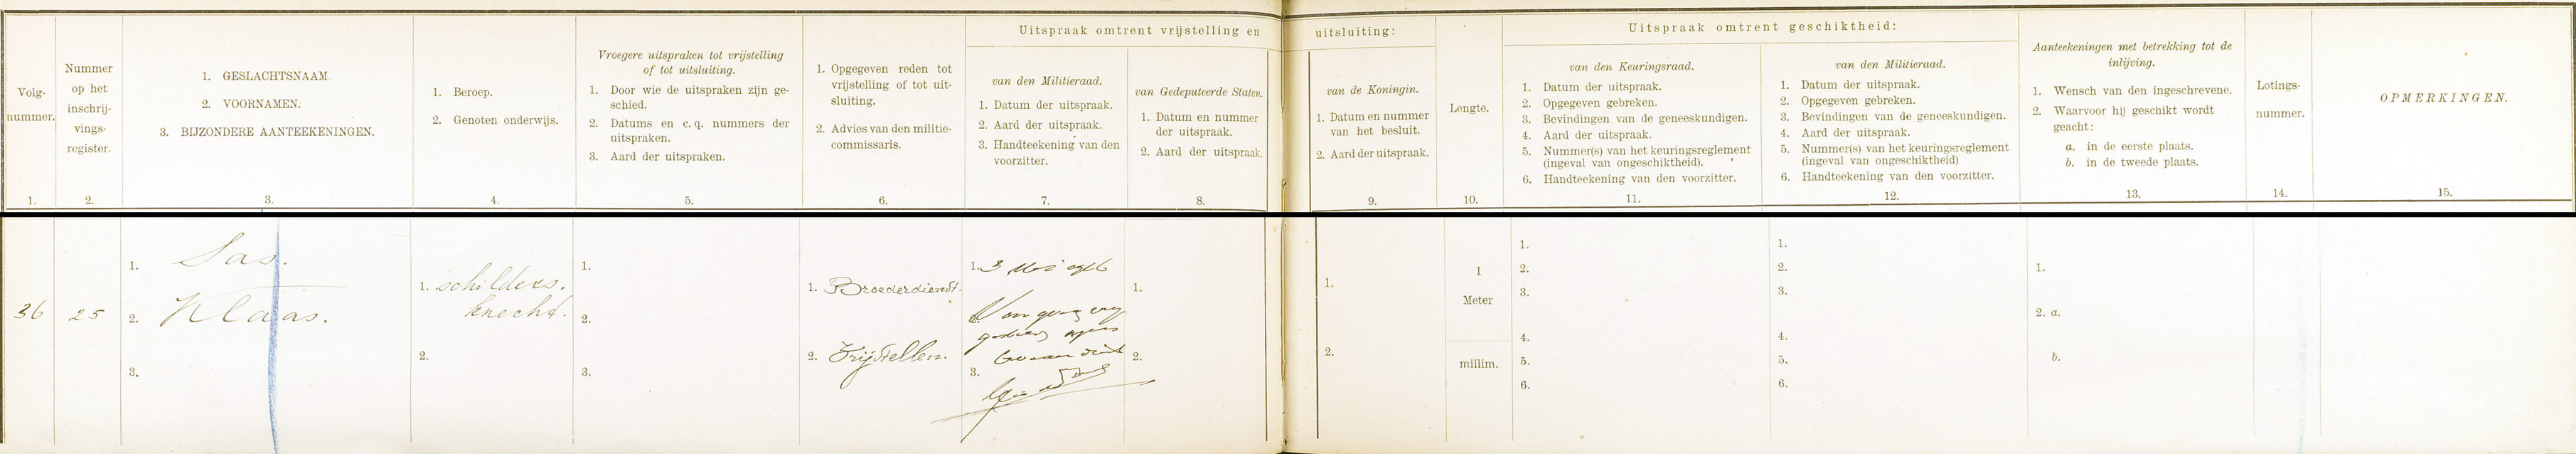 Uitspraak omtrent vrijstelling en uitsluiting:
Uitspraak omtrent geschiktheid:
Volg-
nummer.
1.
Nummer
op het
inschrij-
vings-
register.
2.
1. GESLACHTSNAAM.
2. VOORNAMEN.
3. BIJZONDERE AANTEEKENINGEN.
3.
1. Beroep.
2. Genoten onderwijs.
4.
Vroegere uitspraken tot vrijstelling
of tot uitsluiting.
1. Door wie de uitspraken zijn ge-
schied.
2. Datums en c.q. nummers der
uitspraken.
3. Aard der uitspraken.
5.
1. Opgegeven reden tot
vrijstelling of tot uit-
sluiting.
2. Advies van den militie-
commissaris.
6.
van den Militieraad.
1. Datum der uitspraak.
2. Aard der uitspraak.
3. Handteekening van den
voorzitter.
7.
van Gedeputeerde Staten.
1. Datum en nummer
der uitspraak.
2. Aard der uitspraak.
8.
van de Koningin.
1. Datum en nummer
van het besluit.
2. Aard der uitspraak.
9.
Lengte.
10.
van den Keuringsraad.
1. Datum der uitspraak.
2. Opgegeven gebreken.
3. Bevindingen van de geneeskundigen.
4. Aard der uitspraak.
5. Nummer(s) van het keuringsreglement
(ingeval van ongeschiktheid).
6. Handteekening van den voorzitter.
11.
van den Militieraad.
1. Datum der uitspraak.
2. Opgegeven gebreken.
3. Bevindingen van de geneeskundigen.
4. Aard der uitspraak.
5. Nummer(s) van het keuringsreglement
(ingeval van ongeschiktheid)
6. Handteekening van den voorzitter.
12.
Aanteekeningen met betrekking tot de
inlijving.
1. Wensch van den ingeschrevene.
2. Waarvoor hij geschikt wordt
geacht:
a. in de eerste plaats.
b. in de tweede plaats.
13.
Lotings-
nummer.
14.
OPMERKINGEN.
15.
36
25
1. Sas.
2. Klaas.
3.
1. schilders.
knecht.
2.
1.
2.
3.
1. Broederdienst.
2. Vrijstellen.
1. 3 Mei
3.
1.
2.
1.
2.
1
Meter
millim.
1.
2.
3.
4.
5.
6.
1.
2.
3.
4.
5.
6.
1.
2. a.
b.